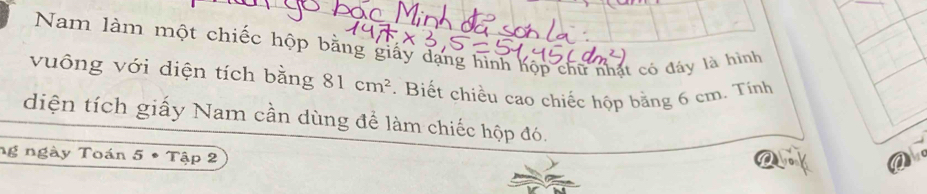 gỗ bác Minh đã sơn là:
14,7 × 3,5 = 51,45 (dm²)
Nam làm một chiếc hộp bằng giấy dạng hình hộp chữ nhật có đáy là hình
vuông với diện tích bằng 81 cm². Biết chiều cao chiếc hộp bằng 6 cm. Tính
diện tích giấy Nam cần dùng để làm chiếc hộp đó.
ng ngày Toán 5 • Tập 2